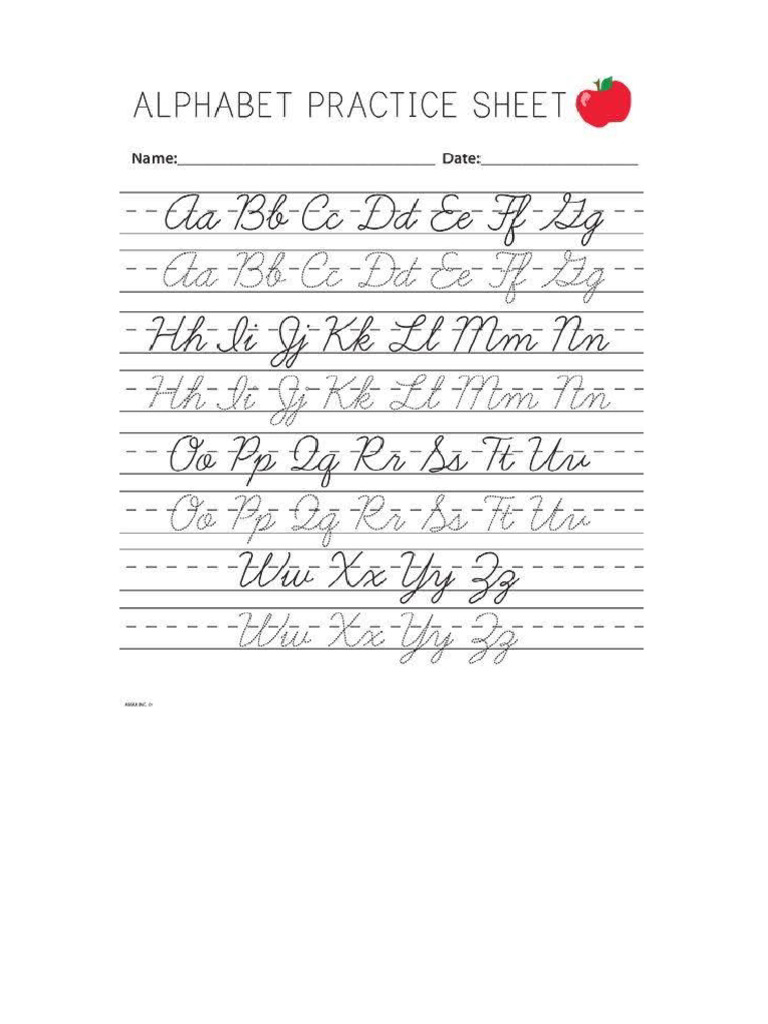 ALPHABET PRACTICE SHEET
Name: Date:
Aa Bb Cc Dd Ee Ff Gg
Aa Bb Cc Dd Ee Ff Gg
Hh Ii Jj Kk Ll Mm Nn
Hh Ii Jj Kk Ll Mm Nn
Oo Pp Qq Rr Ss Tt Uu
Oo Pp Qq Rr Ss Tt Uu
Ww Xx Yy Zz
Ww Xx Yy Zz